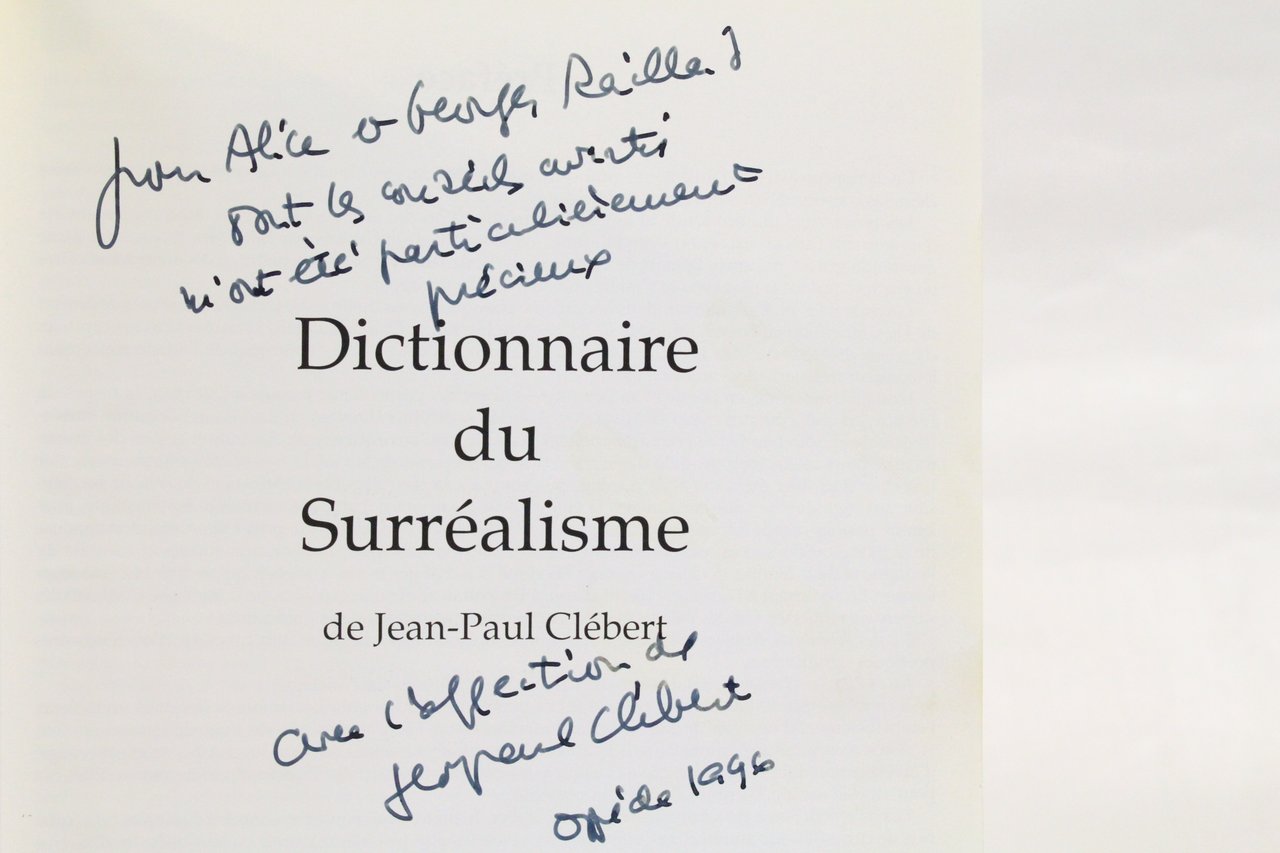 pour Alice et Georges Raillard
dont les conseils avertis
m'ont été particulièrement
précieux
Dictionnaire
du
Surréalisme
de Jean-Paul Clébert
avec l'affection de
Jean Paul Clébert
Oppède 1996